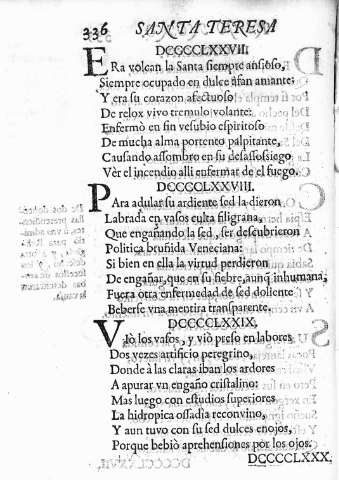 336 SANTA TERESA
DCCCCLXXVII.
ERa volcan la Santa siempre ansioso,
Siempre ocupado en dulce afan amante:
Y era su corazon afectuoso
De relox vivo tremulo volante:
Enfermò en fin vesubio espiritoso
De mucha alma portento palpitante,
Causando assombro en su desassossiego
Vèr el incendio alli enfermar de el fuego.
DCCCCLXXVIII.
PAra adular su ardiente sed la dieron
Labrada en vasos culta filigrana,
Que engañando la sed, ser descubrieron
Politica bruñida Veneciana:
Si bien en ella la virtud perdieron
De engañar, que en su fiebre, aunq̃ inhumana,
Fuera otra enfermedad de sed doliente
Beberse vna mentira transparente.
DCCCCLXXIX,
VIò los vasos, y viò preso en labores
Dos vezes artificio peregrino,
Donde à las claras iban los ardores
A apurar vn engaño cristalino:
Mas luego con estudios superiores
La hidropica ossadia reconvino,
Y aun tuvo con su sed dulces enojos,
Porque bebiò aprehensiones por los ojos.
DCCCCLXXX.